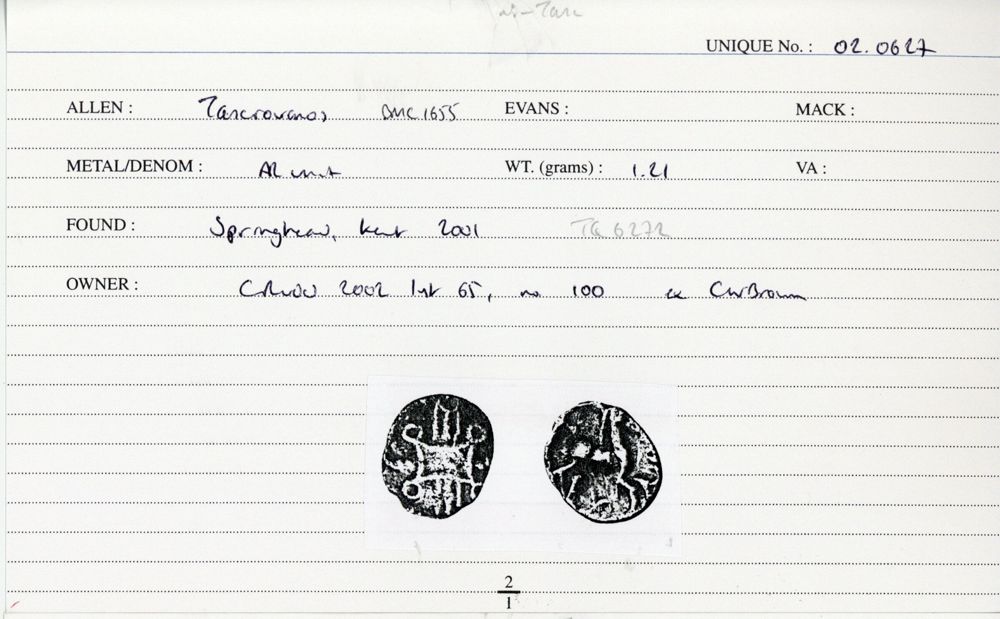 UNIQUE No. : 02.0627
ALLEN : Tasciovanos BMC 1655 EVANS : MACK :
METAL/DENOM : AR unit WT. (grams) : 1.21 VA :
FOUND : Springhead, Kent 2001 TQ 6272
OWNER : 2002 list 65, no 100 ex CW Brown
2
1